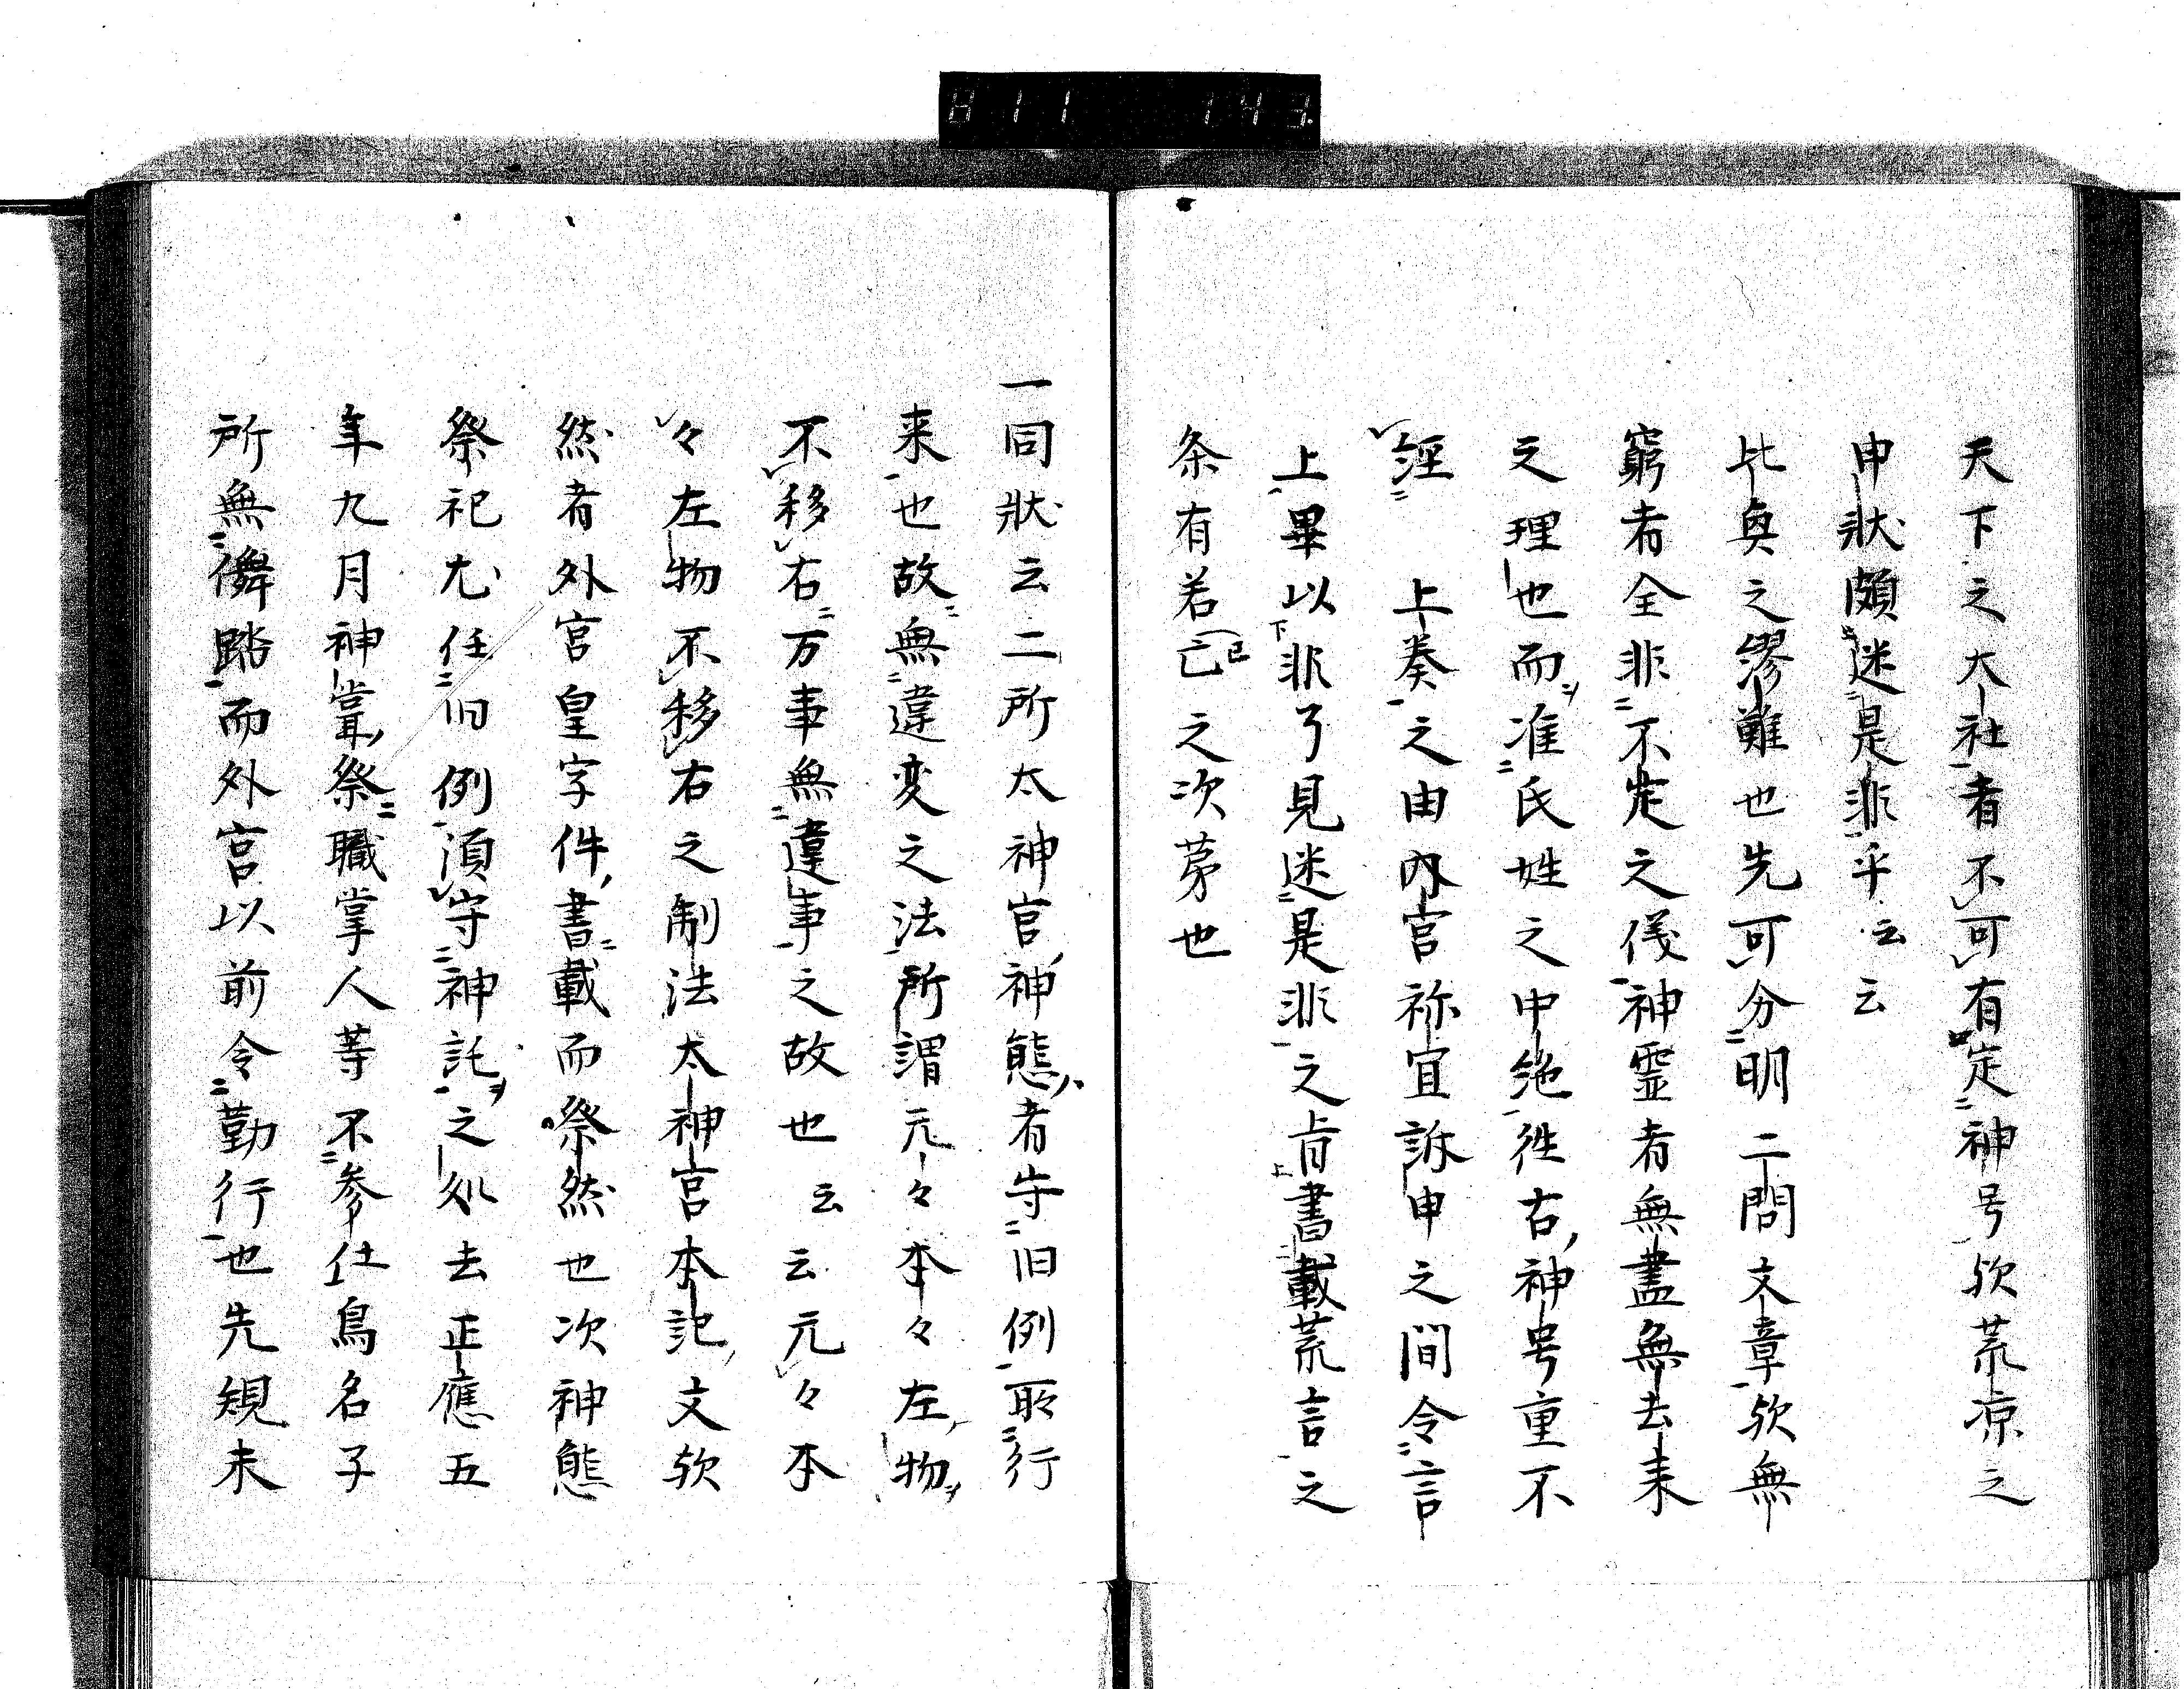 811 143.
天下之大社者不可有定神号欤荒凉之
申状頗迷是非乎云云
比奥之謬難也先可分明二問文章欤無
窮者全非不定之儀神霊者無盡無去来
之理也而准氏姓之中絶往古神号重不
経 上奏之由内宮祢宜訴申之間令言
上畢以非了見迷是非之旨書載荒言之
条有若亡之次第也
一同状云二所太神宮神態者守旧例取行
来也故無違変之法所謂元々本々左物
不移右万事無違事之故也云云元々本
々左物不移右之制法太神宮本記文欤
然者外宮皇字件書載而祭然也次神態
祭祀尤任旧例須守神託之処去正應五
年九月神甞祭職掌人等不参仕鳥名子
所無儛踏而外宮以前令勤行也先規未